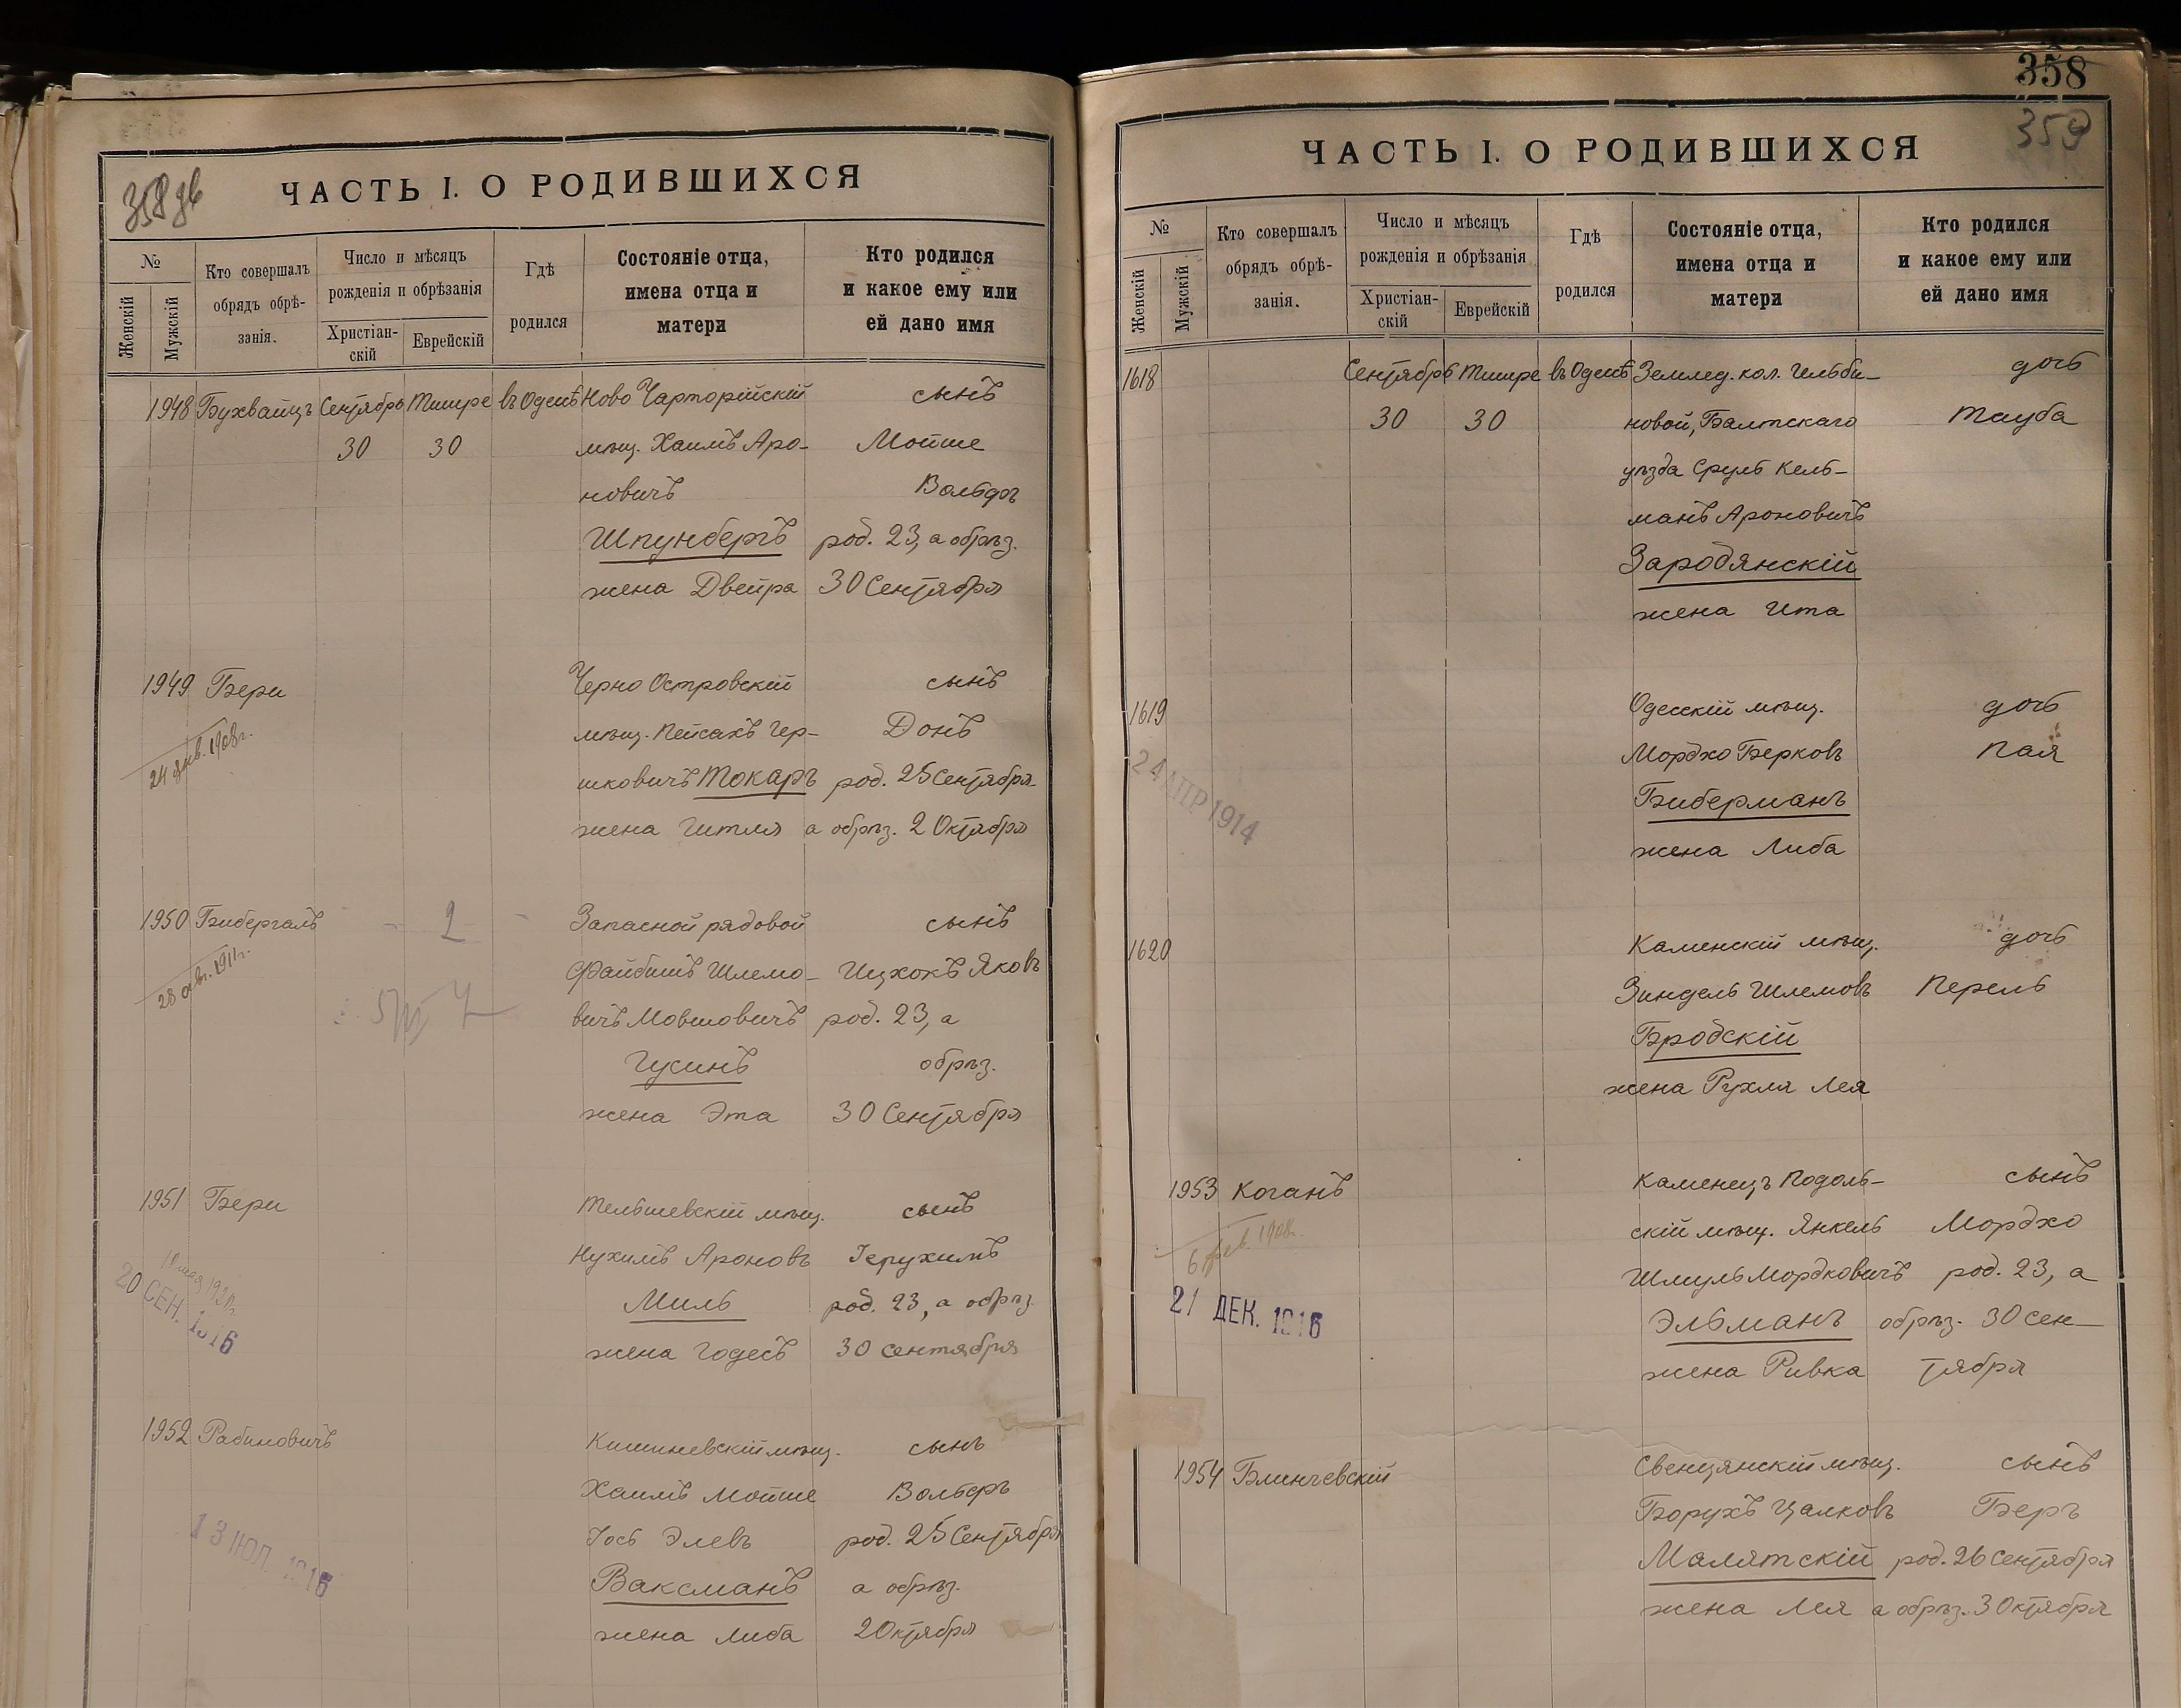 358 дв
ЧАСТЬ I. О РОДИВШИХСЯ
№
Женскій
Мужскій
Кто совершалъ
обрядъ обрѣ-
занія.
Число и мѣсяцъ
рожденія и обрѣзанія
Христіан-
скій
Еврейскій
Гдѣ
родился
Состояніе отца,
имена отца и
матери
Кто родился
и какое ему или
ей дано имя
1948 Бухвайцъ Сентябрь Тишре въ Одессѣ Ново Чарторійскій сынъ
30 30 мѣщ. Хаимъ Аро- Мойше
новичъ Вольфъ
Шпунбергъ род. 23, а обрѣз.
жена Двейра 30 Сентября
1949 Бери Черно Островскій сынъ
24 янв. 1908г. мѣщ. Пейсахъ Гер- Донъ
шковичъ Токаръ род. 25 Сентября
жена Гитля а обрѣз. 2 Октября
1950 Бибергалъ 2 Запасной рядовой сынъ
28 авг. 1911г. Файбишъ Шлемо- Ицхокъ Яковъ
вичъ Мовшовичъ род. 23, а
Гусинъ обрѣз.
жена Эта 30 Сентября
1951 Бери Тельшевскій мѣщ. сынъ
Нухимъ Ароновъ Іерухимъ
20 СЕН. 1916 Миль род. 23, а обрѣз.
жена Годесъ 30 сентября
1952 Рабиновичъ Кишиневскій мѣщ. сынъ
Хаимъ Мойше Вольфъ
13 ІЮЛ. 1916 Іось Элевъ род. 25 Сентября
Ваксманъ а обрѣз.
жена Либа 2 Октября
358
359
ЧАСТЬ I. О РОДИВШИХСЯ
№
Женскій
Мужскій
Кто совершалъ
обрядъ обрѣ-
занія.
Число и мѣсяцъ
рожденія и обрѣзанія
Христіан-
скій
Еврейскій
Гдѣ
родился
Состояніе отца,
имена отца и
матери
Кто родился
и какое ему или
ей дано имя
1618 Сентябрь Тишре въ Одессѣ Землед. кол. Гельби- дочь
30 30 новой, Балтскаго Тауба
уѣзда Сруль Кель-
манъ Ароновичъ
Зародянскій
жена Ита
1619 Одесскій мѣщ. дочь
24 АПР 1914 Мордко Берковъ Пая
Биберманъ
жена Либа
1620 Каменскій мѣщ. дочь
Зиндель Шлемовъ Перель
Бродскій
жена Рухля Лея
1953 Коганъ Каменецъ Подоль- сынъ
6 фев. 1908г. скій мѣщ. Янкель Мордко
21 ДЕК. 1916 Шмуль Мордковичъ род. 23, а
Эльманъ обрѣз. 30 сен-
жена Ривка тября
1954 Блинчевскій Свенцянскій мѣщ. сынъ
Борухъ Цалковъ Беръ
Малятскій род. 26 Сентября
жена Лея а обрѣз. 3 Октября